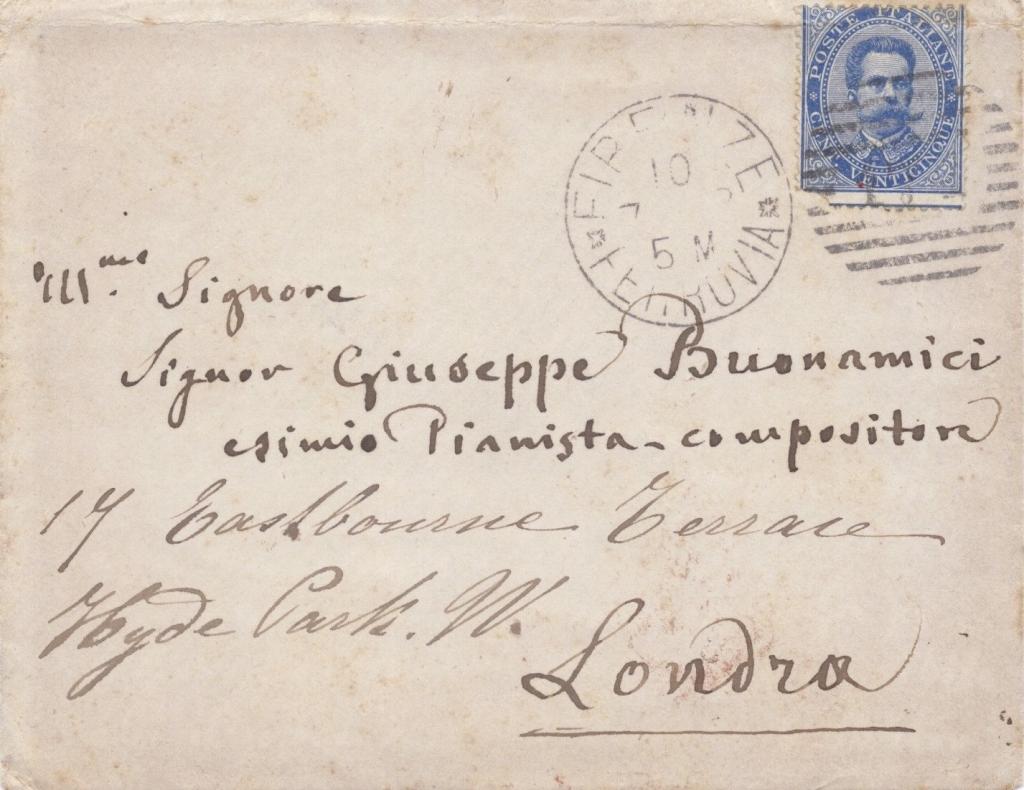 POSTE ITALIANE
CEN. VENTICINQUE
FIRENZE
10
7
5 M
FERROVIA
Ill.mo Signore
Signor Giuseppe Buonamici
esimio Pianista-compositore
17 Eastbourne Terrace
Hyde Park. W.
Londra